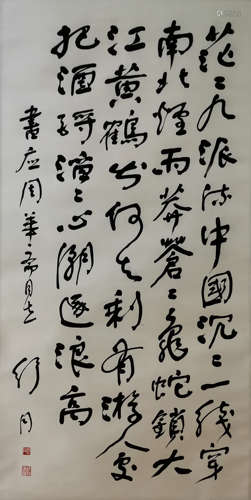 茫々九派流中國沉々一线穿
南北煙雨莽蒼々龜蛇鎖大
江黃鶴知何去剩有游人处
把酒酹滔々心潮逐浪高
書应周華同志
舒同